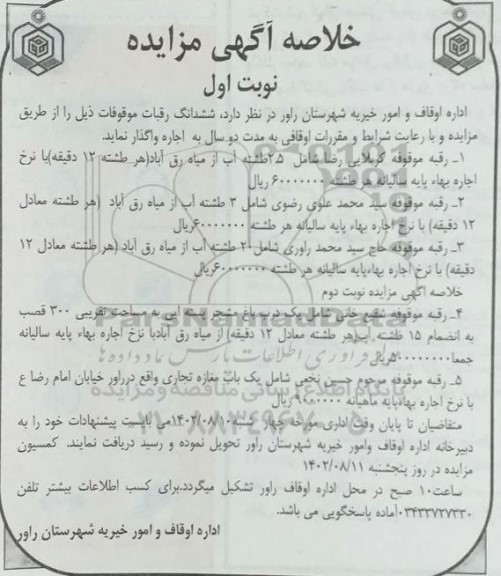 خلاصه آگهی مزایده
نوبت اول
اداره اوقاف و امور خیریه شهرستان راور در نظر دارد، ششدانگ رقبات موقوفات ذیل را از طریق
مزایده و با رعایت شرایط و مقررات اوقافی به مدت دو سال به اجاره واگذار نماید.
۱ـ رقبه موقوفه کربلایی رضا شامل ۲.۵طشته آب از میاه رق آباد(هر طشته ۱۲ دقیقه)با نرخ
اجاره بهاء پایه سالیانه هر طشته ۶۰۰۰۰۰۰ ریال
۲ـ رقبه موقوفه سید محمد علوی رضوی شامل ۳ طشته آب از میاه رق آباد (هر طشته معادل
۱۲ دقیقه) با نرخ اجاره بهاء پایه سالیانه هر طشته ۶۰۰۰۰۰۰ریال
۳ـ رقبه موقوفه حاج سید محمد راوری شامل ۲ طشته آب از میاه رق آباد (هر طشته معادل ۱۲
دقیقه) با نرخ اجاره بهاءپایه سالیانه هر طشته ۶۰۰۰۰۰۰ریال
خلاصه آگهی مزایده نوبت دوم
۴ـ رقبه موقوفه شفیع خانی شامل یک درب باغ مشجر پسته ایی به مساحت تقریبی ۳۰۰ قصب
به انضمام ۱۵ طشته آب(هر طشته معادل ۱۲ دقیقه) از میاه رق آبادبا نرخ اجاره بهاء پایه سالیانه
جمعا ریال
۵ـ رقبه موقوفه مرحوم حسین نخعی شامل یک باب مغازه تجاری واقع درراور خیابان امام رضا ع
با نرخ اجاره بهاءپایه ماهیانه ریال
متقاضیان تا پایان وقت اداری مورخه چهار شنبه ۱۴۰۲/۰۸/۱۰می بایست پیشنهادات خود را به
دبیرخانه اداره اوقاف وامور خیریه شهرستان راور تحویل نموده و رسید دریافت نمایند. کمسیون
مزایده در روز پنجشنبه ۱۴۰۲/۰۸/۱۱
ساعت۱۰ صبح در محل اداره اوقاف راور تشکیل میگردد.برای کسب اطلاعات بیشتر تلفن
۰۳۴۳۳۷۲۷۳۳۰آماده پاسخگویی می باشد.
اداره اوقاف و امور خیریه شهرستان راور